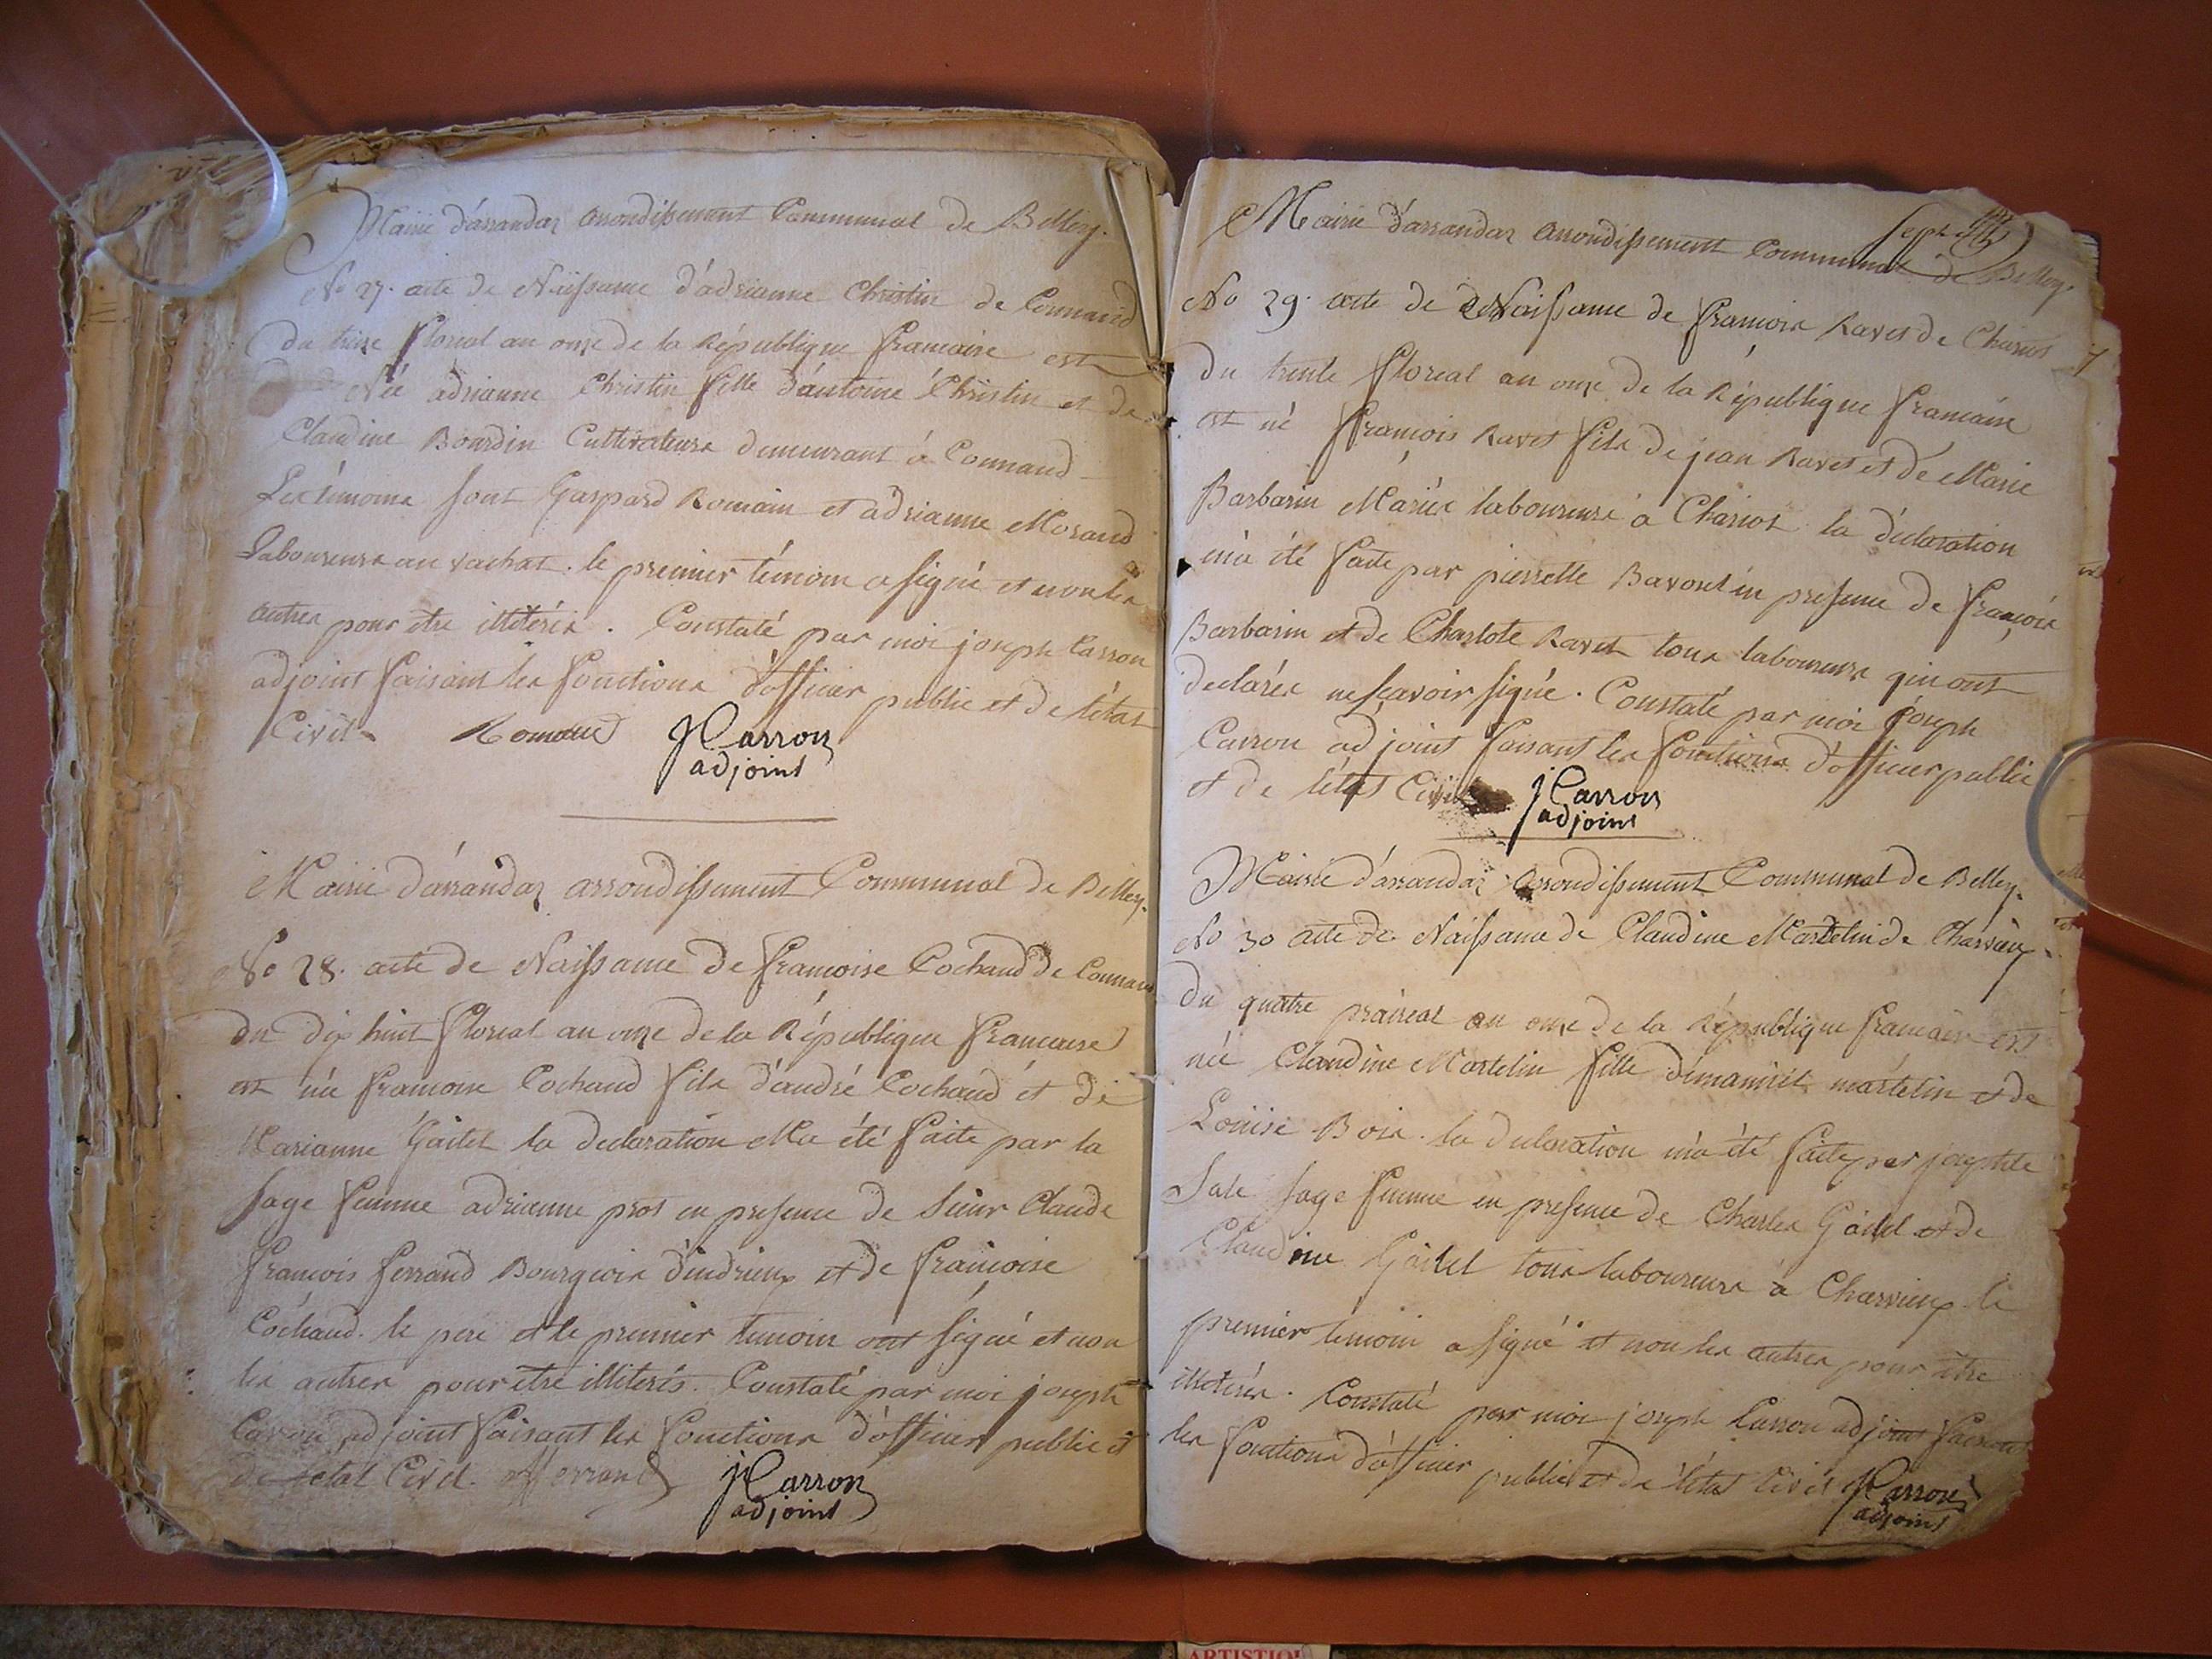 Mairie d'arrandaz arrondissement Communal de Belley.
No 27. acte de Naissance d'adrianne Christin de Connand
du treize floreal an onze de la République francaise est
Née adrianne Christin fille d'antoine Christin et de
Claudine Bourdin Cultivateurs demeurant à Connand
Les témoins sont Gaspard Romain et adrianne Morand
Laboureurs au vachat. le premier témoin a signé et non les
autres pour etre illitérés. Constaté par moi joseph Carron
adjoint faisant les fonctions d'officier public et de l'état
Civil
JCarron
adjoint
Mairie d'arrandaz arrondissement Communal de Belley.
No 28. acte de Naissance de francoise Cochaud de Connand
du dix huit floreal an onze de la République francaise
est née francoise Cochaud fils d'andré Cochaud et de
Marianne Gaitet la declaration Ma été faite par la
sage femme adrianne prot en presence de Sieur Claude
françois ferrand Bourgeois d'indrieux et de françoise
Cochaud. le pere et le premier temoin ont signé et non
les autres pour etre illiterés. Constaté par moi joseph
Carron adjoint faisant les fonctions d'officier public et
de letat Civil. fferrand
JCarron
adjoint
sept
Mairie d'arrandaz arrondissement Communal de Belley.
No 29. acte de Naissance de françois Ravet de Chariot
7
du trente floreal an onze de la République francaise
est né françois Ravet fils de jean Ravet et de Marie
Barbarin Mariés laboureurs a Chariot la déclaration
m'a été faite par pierrette Bavoul en presence de françois
Barbarin et de Charlote Ravet tous laboureurs qui ont
declarés ne sçavoir signé. Constaté par moi joseph
Carron adjoint faisant les fonctions d'officier public
et de létat Civil
JCarron
adjoint
Mairie d'arrandaz arrondissement Communal de Belley.
No 30 acte de Naissance de Claudine Martelin de Charvieux
du quatre prairéal an onze de la République francaise est
née Claudine Martelin fille d'émanuel martelin et de
Louise Bois. la declaration m'a été faite par josephte
Sale sage femme en presence de Charles Gaitet et de
Claudine Gaitet tous laboureurs a Charvieux le
premier temoin a signé et non les autres pour être
illiterés. Constaté par moi joseph Carron adjoint faisant
les fonctions d'officier public et de l'état Civil
JCarron
adjoint